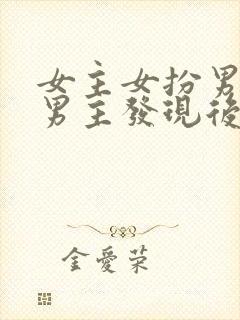 女主女扮男
男主發現後
金愛榮